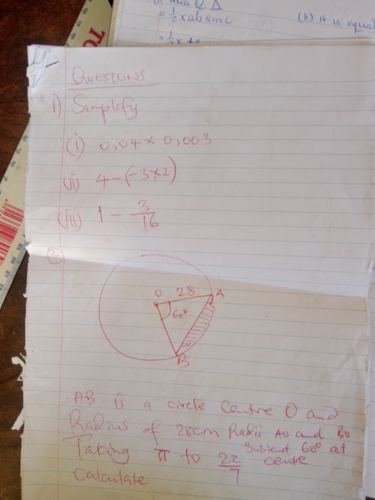 = ½ x ab sin c
(b) it is equal
QUESTIONS
1) Simplify
(i) 0,04 x 0,003
(ii) 4 - (-3x2)
(iii) 1 - 3/16
O 28 A
60°
B
AB is a circle Centre O and
Radius of 28cm Radii AO and BO
Subtent 60° at
Taking π to 22/7 centre
Calculate